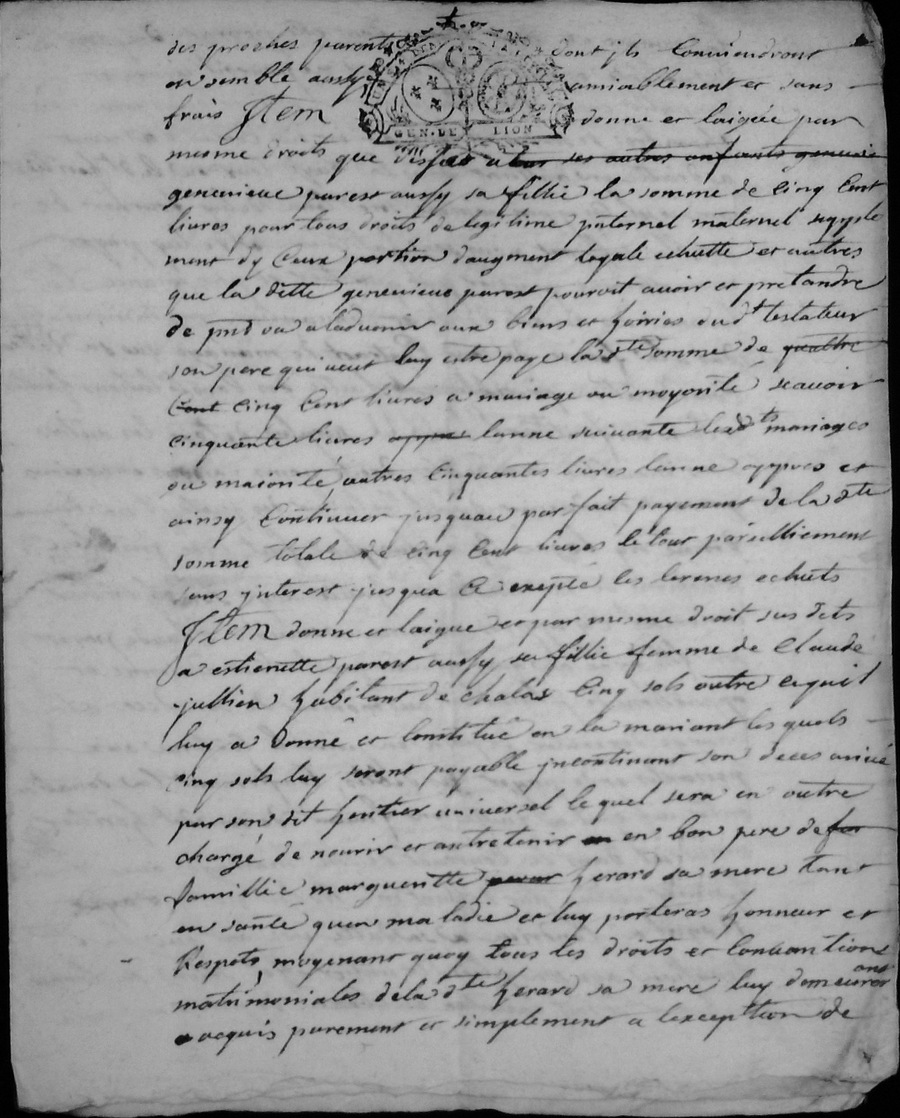 des proches parents dont ils Conviendront
ensemble aussy amiablement et sans
frais Jtem donne et laigue par
GEN. DE LION
mesme droits que dessus a ses autres enfants genevie
genevieve parest aussy sa fillie la somme de Cinq Cent
livres pour tous droits de legitime paternel maternel supple
ment dy Ceux portion daugment legale echutte et autres
que la ditte genevieve parest pouroit avoir et pretandre
de pnt ou aladvenir aux biens et hoiries dud t testateur
son pere qui veut luy estre payé la dte somme de quattre
Cent Cinq Cent livres a mariage ou mayorité scavoir
Cinquante livres appres lanne suivante lesdts mariages
ou maiorité autres Cinquantes livres lanne appres et
ainsy Continuer jusquau parfait payement de la dte
somme totale de Cinq Cent livres le tout pareilliement
sans jnterest jusqua Ce exepté les termes echuts
Jtem donne et laigue et par mesme droit sus dets
a estienette parest aussy sa fillie femme de Claude
jullien habitant de chalas Cinq sols outre cequil
luy a donné et Constitué en la mariant les quels
Cinq sols luy seront payable jncontinant son deces arivé
par son dit heritier universel le quel sera en outre
chargé de nourir et antretenir en bon pere de fa
famillie margueritte herard sa mere tant
en santé quen maladie et luy porteras honneur et
Respets, moyenant quoy tous les droits et Convantions
matrimoniales dela dte herard sa mere luy demeureront
acquis purement et simplement a lexception de